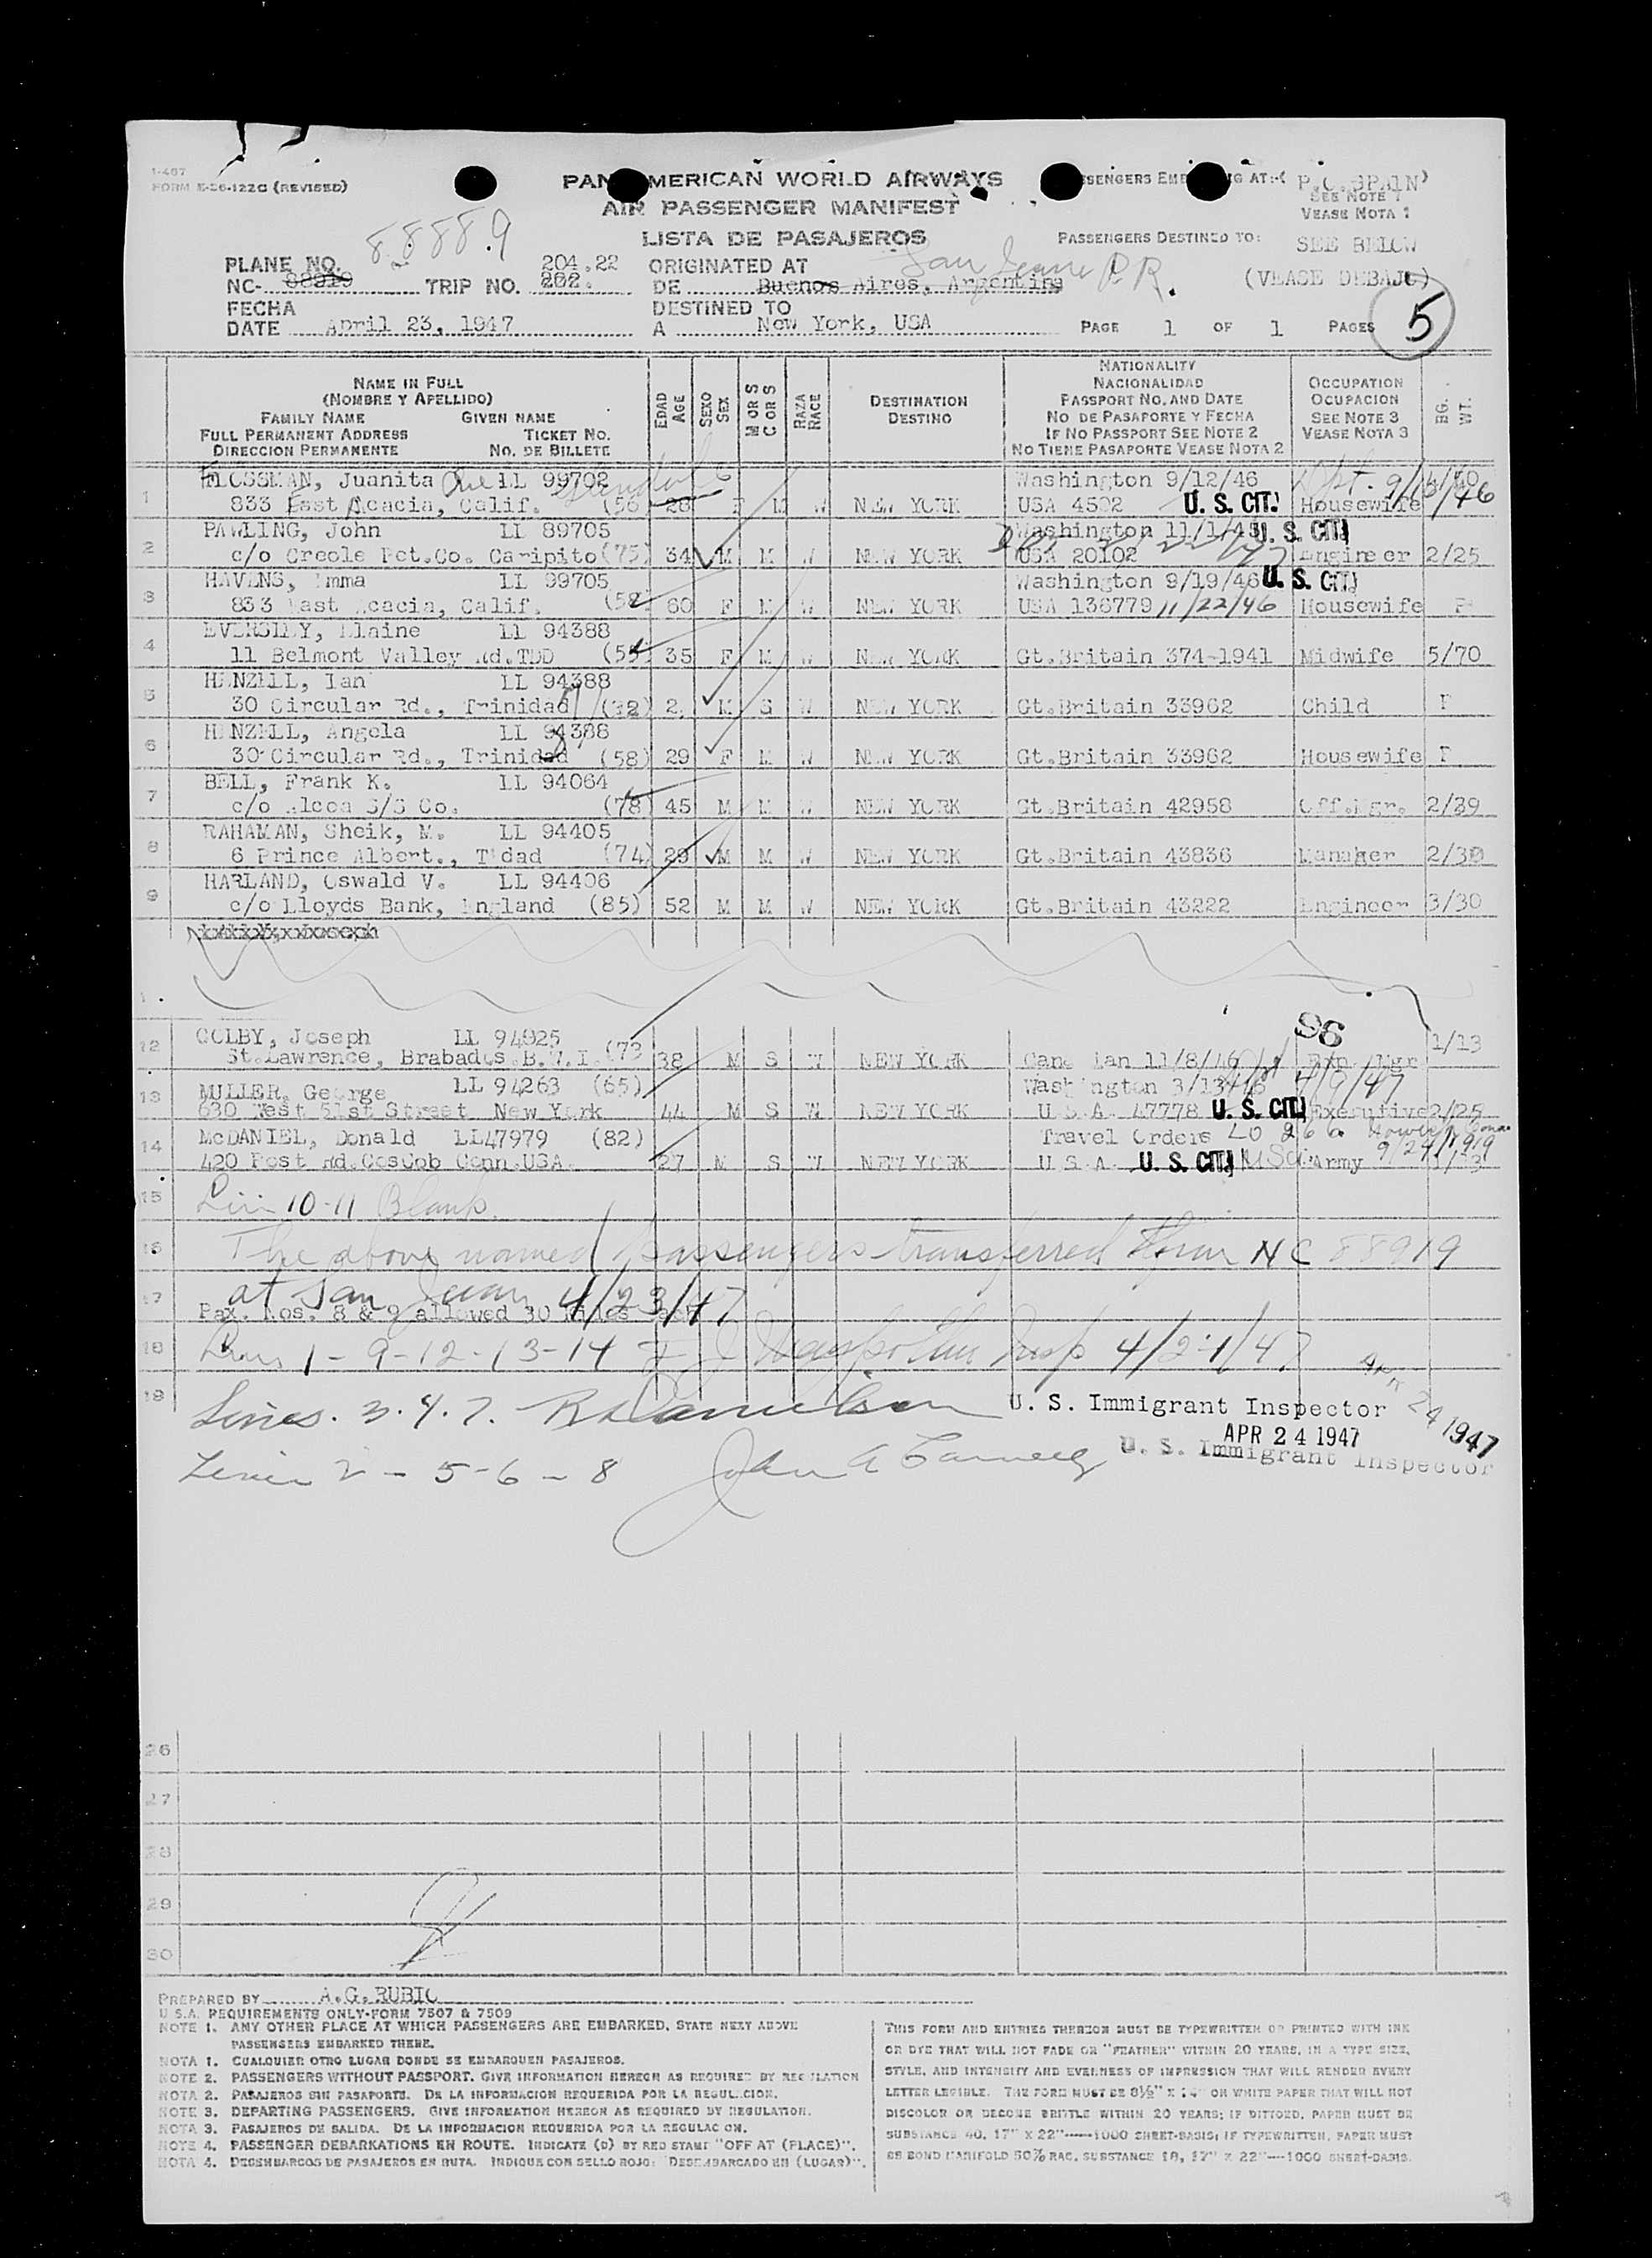 1-467
FORM E-56-122G (REVISED)
PAN AMERICAN WORLD AIRWAYS
AIR PASSENGER MANIFEST
LISTA DE PASAJEROS
AT:-( P.O. SPAIN)
SEE NOTE 1
VEASE NOTA 1
PASSENGERS DESTINED TO: SEE BELOW
(VEASE DEBAJO)
88889
PLANE NO.
NC- 88919 TRIP NO. 204.22 202.
ORIGINATED AT San Juan P.R.
DE Buenos Aires, Argentina
FECHA
DATE April 23, 1947
DESTINED TO
A New York, USA
PAGE 1 OF 1 PAGES 5
NAME IN FULL
(NOMBRE Y APELLIDO)
FAMILY NAME GIVEN NAME
FULL PERMANENT ADDRESS TICKET NO.
DIRECCION PERMANENTE NO. DE BILLETE
EDAD AGE
SEXO SEX
M OR S C OR S
RAZA RACE
DESTINATION
DESTINO
NATIONALITY
NACIONALIDAD
PASSPORT NO. AND DATE
NO. DE PASAPORTE Y FECHA
IF NO PASSPORT SEE NOTE 2
NO TIENE PASAPORTE VEASE NOTA 2
OCCUPATION
OCUPACION
SEE NOTE 3
VEASE NOTA 3
BG. WT.
1 FLOSSMAN, Juanita LL 99702 Washington 9/12/46
833 East Acacia, Calif. (56) 28 F M W NEW YORK USA 4502 U. S. CIT. Housewife
2 PAWLING, John LL 89705 Washington 11/1/45 U. S. CIT.
c/o Creole Pet.Co. Caripito (75) 34 M M W NEW YORK USA 20102 Engineer 2/25
3 HAVENS, Emma LL 99705 Washington 9/19/46 U. S. CIT.
833 East Acacia, Calif. (58) 60 F M W NEW YORK USA 136779 11/22/46 Housewife F
4 EVERSLEY, Elaine LL 94388
11 Belmont Valley Rd.TDD (55) 35 F M W NEW YORK Gt.Britain 374-1941 Midwife 5/70
5 HENZELL, Ian LL 94388
30 Circular Rd., Trinidad (32) 2. M S W NEW YORK Gt.Britain 33962 Child F
6 HENZELL, Angela LL 94388
30 Circular Rd., Trinidad (58) 29 F M W NEW YORK Gt.Britain 33962 Housewife F
7 BELL, Frank K. LL 94064
c/o Alcoa S/S Co. (78) 45 M M W NEW YORK Gt.Britain 42958 Off.Mgr. 2/39
8 RAHAMAN, Sheik, M. LL 94405
6 Prince Albert., T'dad (74) 29 M M W NEW YORK Gt.Britain 43836 Manager 2/30
9 HARLAND, Oswald V. LL 94406
c/o Lloyds Bank, England (85) 52 M M W NEW YORK Gt.Britain 43222 Engineer 3/30
96
12 COLBY, Joseph LL 94825 1/13
St.Lawrence, Brabados.B.W.I. (73 38 M S W NEW YORK Canadian 11/8/46 Exp. Mgr
13 MILLER, George LL 94263 (65) Washington 3/13/46 4/9/47
630 West 51st Street New York 44 M S W NEW YORK U.S.A. 47778 U. S. CIT. Executive 2/25
14 McDANIEL, Donald LL47979 (82) Travel Orders
420 Post Rd.CosCob Conn.USA. 27 M S W NEW YORK U.S.A. U. S. CIT. Army
15 Line 10-11 Blank.
16 The above named passengers transferred from NC 88919
17 at San Juan 4/23/47
Pax. Nos. 8 & 9 allowed 30 Kilos each
18 Lines 1-9-12-13-14 Insp 4/24/47
19 Lines. 3.4.7. R Danielson U. S. Immigrant Inspector
APR 24 1947
APR 24 1947
Lines 2-5-6-8 John A U. S. Immigrant Inspector
26
27
28
29
30
PREPARED BY A.G.RUBIO
U.S.A. REQUIREMENTS ONLY-FORM 7507 & 7509
NOTE 1. ANY OTHER PLACE AT WHICH PASSENGERS ARE EMBARKED, STATE NEXT ABOVE
PASSENGERS EMBARKED THERE.
NOTA 1. CUALQUIER OTRO LUGAR DONDE SE EMBARQUEN PASAJEROS.
NOTE 2. PASSENGERS WITHOUT PASSPORT. GIVE INFORMATION HEREON AS REQUIRED BY REGULATION
NOTA 2. PASAJEROS SIN PASAPORTE. DE LA INFORMACION REQUERIDA POR LA REGULACION.
NOTE 3. DEPARTING PASSENGERS. GIVE INFORMATION HEREON AS REQUIRED BY REGULATION.
NOTA 3. PASAJEROS DE SALIDA. DE LA INFORMACION REQUERIDA POR LA REGULACION.
NOTE 4. PASSENGER DEBARKATIONS EN ROUTE. INDICATE (D) BY RED STAMP "OFF AT (PLACE)".
NOTA 4. DESEMBARCOS DE PASAJEROS EN RUTA. INDIQUE CON SELLO ROJO: "DESEMBARCADO EN (LUGAR)".
THIS FORM AND ENTRIES THEREON MUST BE TYPEWRITTEN OR PRINTED WITH INK
OR DYE THAT WILL NOT FADE OR "FEATHER" WITHIN 20 YEARS, IN A TYPE SIZE,
STYLE, AND INTENSITY AND EVENNESS OF IMPRESSION THAT WILL RENDER EVERY
LETTER LEGIBLE. THE FORM MUST BE 8½" X 14" ON WHITE PAPER THAT WILL NOT
DISCOLOR OR BECOME BRITTLE WITHIN 20 YEARS; IF DITTOED, PAPER MUST BE
SUBSTANCE 40, 17" X 22"—1000 SHEET-BASIS; IF TYPEWRITTEN, PAPER MUST
BE BOND MANIFOLD 50% RAG, SUBSTANCE 18, 17" X 22"—1000 SHEET-BASIS.